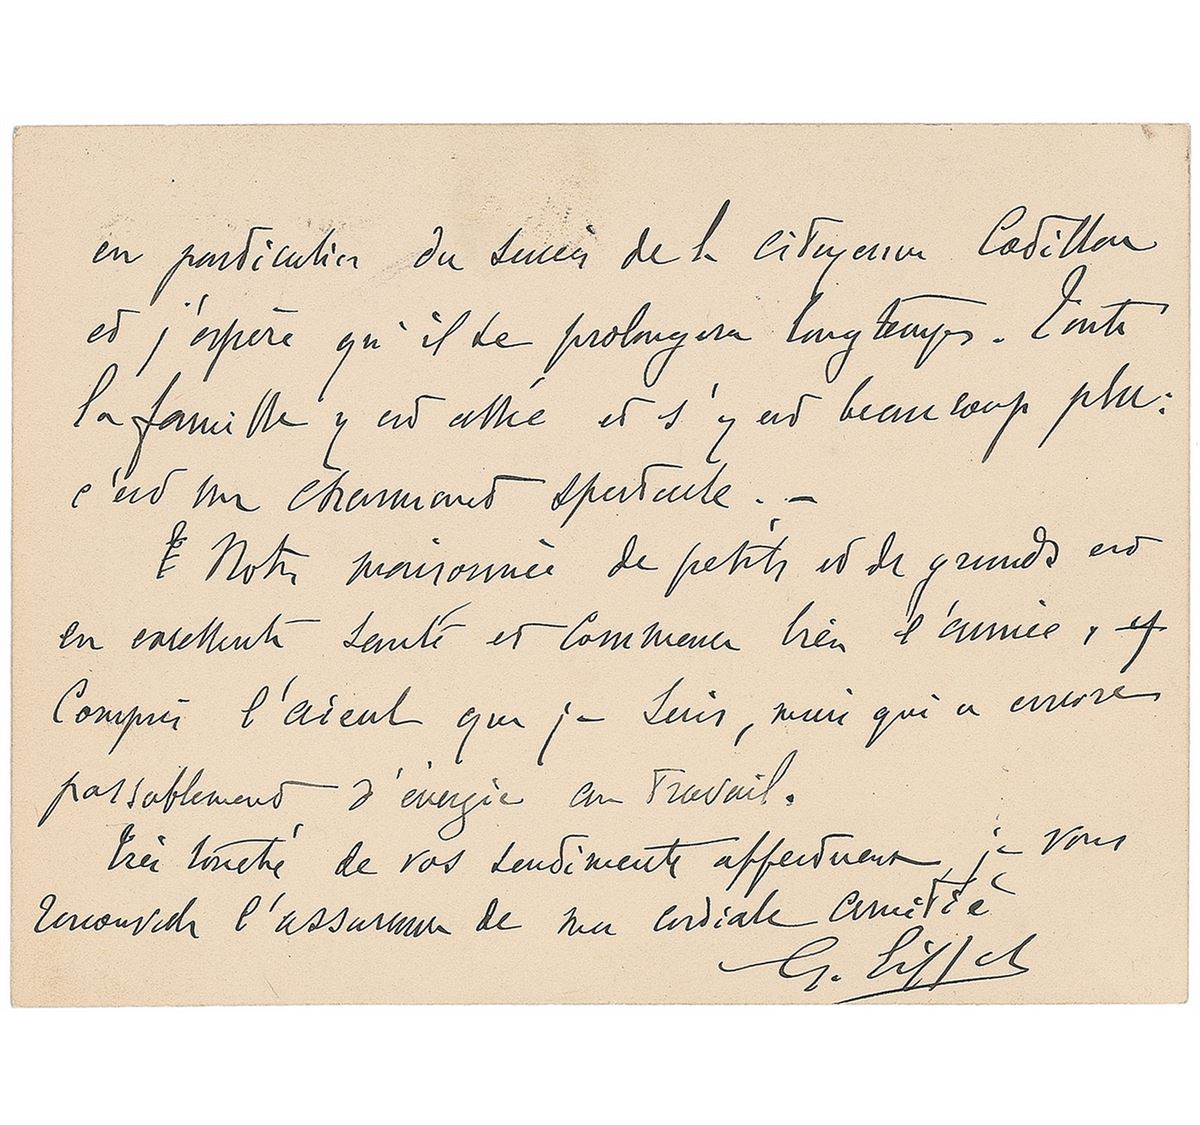 en particulier du succès de la citoyenne Cotillon
et j'espère qu'il se prolongera longtemps. Toute
la famille y est allée et s'y est beaucoup plu :
c'est un charmant spectacle. —
Notre maisonnée de petits et de grands est
en excellente santé et commence bien l'année, y
compris l'aïeul que je suis, mais qui a encore
passablement d'énergie au travail.
Très touché de vos sentiments affectueux, je vous
renouvelle l'assurance de ma cordiale amitié
G. Eiffel